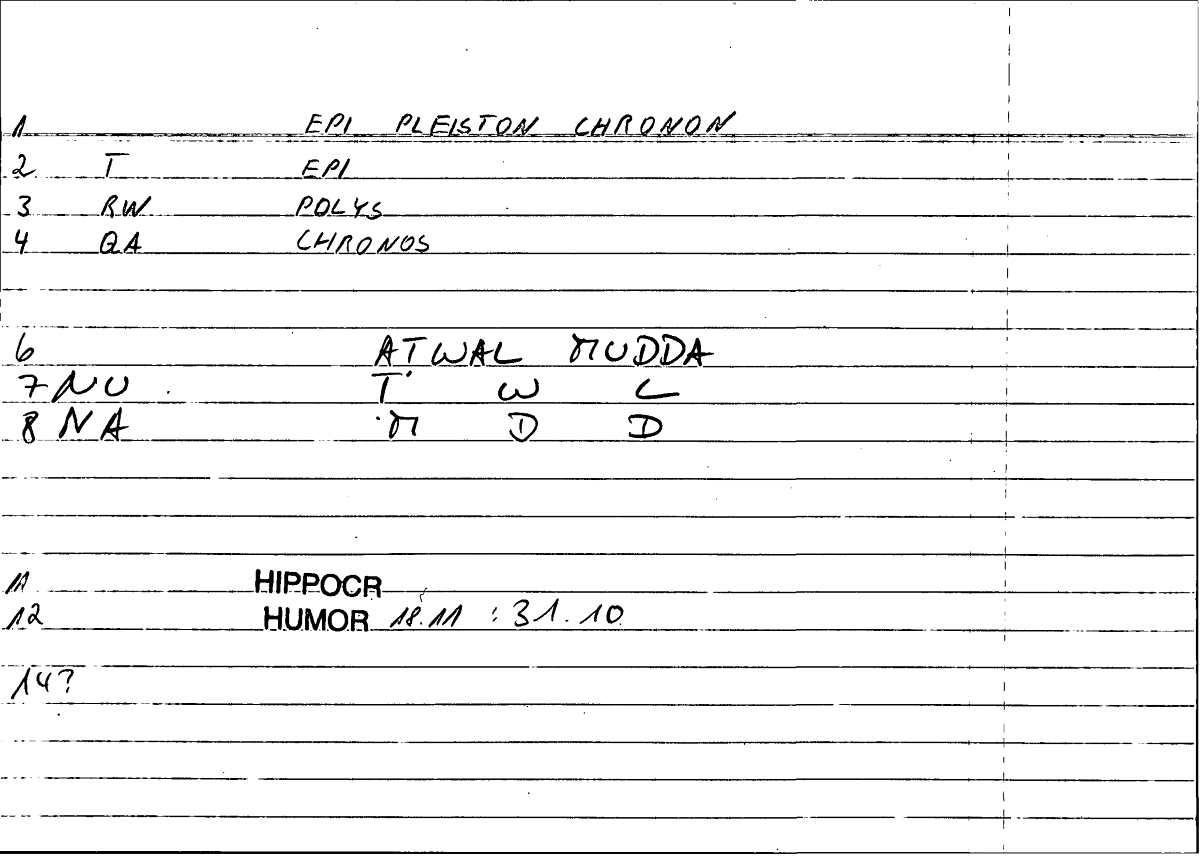 1 EPI PLEISTON CHRONON
2 T EPI
3 RW POLYS
4 QA CHRONOS
6 ATWAL MUDDA
7 NU T W L
8 NA M D D
11 HIPPOCR
12 HUMOR 18.11 : 31.10
14?